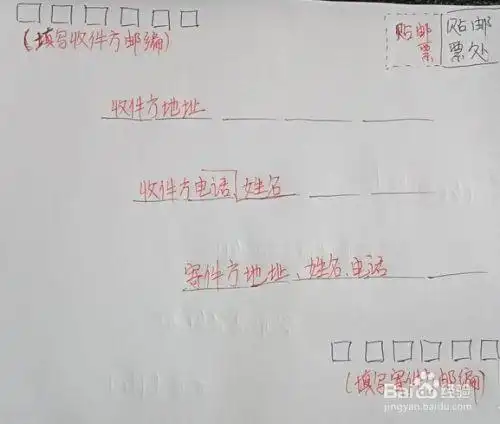 (填写收件方邮编)
贴邮票
贴邮票处
收件方地址
收件方电话、姓名
寄件方地址、姓名、电话
(填写寄件方邮编)
Baidu经验
jingyan.baidu.com